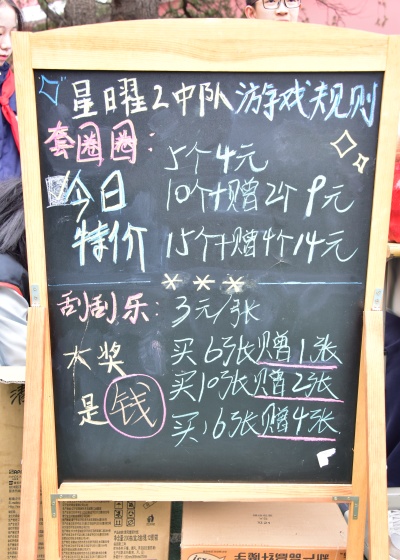 星曜2中队游戏规则
套圈圈:
5个4元
今日
10个+赠2个9元
特价
15个+赠4个14元
刮刮乐:
3元/张
大奖
买6张赠1张
是钱
买10张赠2张
买16张赠4张